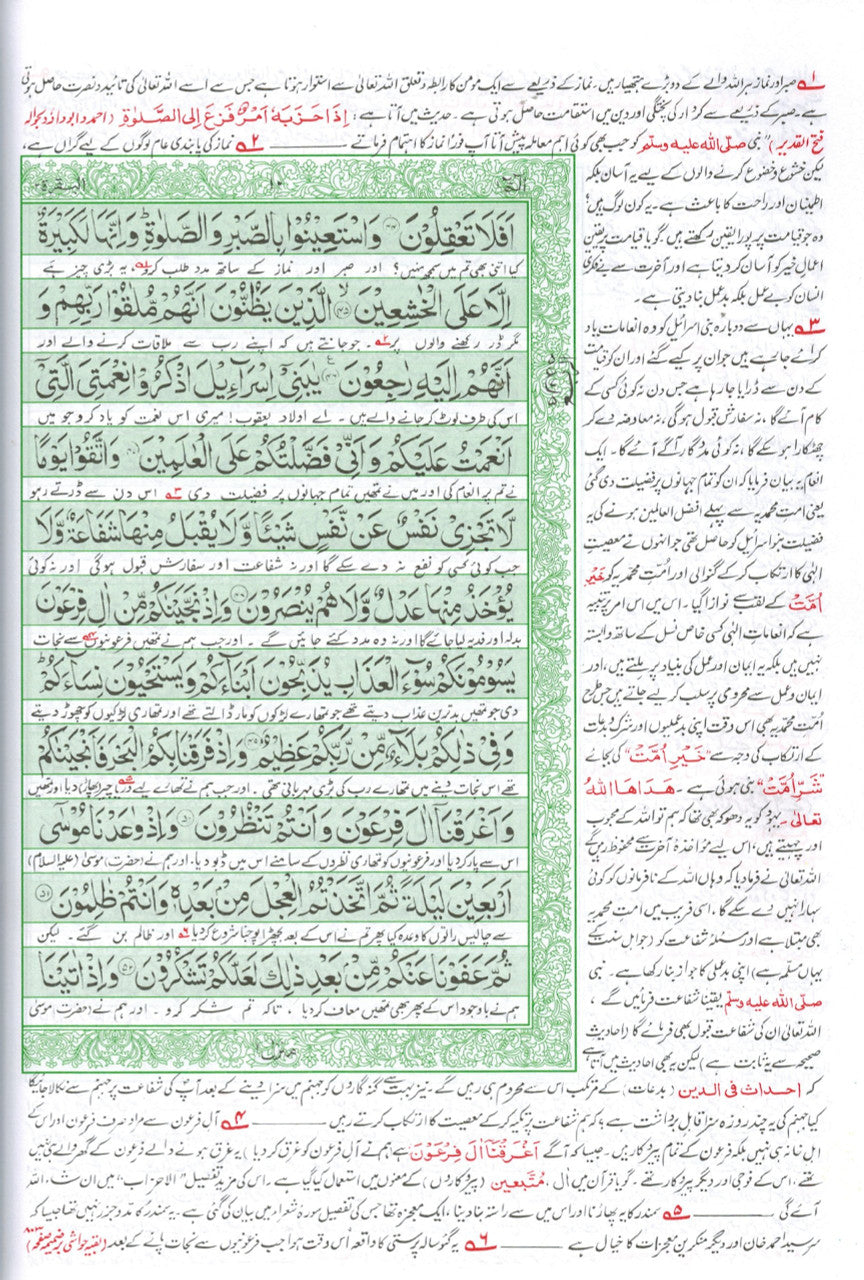 ۱؎ صبر اور نماز ہر اللہ والے کے دو بڑے ہتھیار ہیں۔ نماز کے ذریعے سے ایک مومن کا رابطہ و تعلق اللہ تعالیٰ سے استوار ہوتا ہے جس سے اسے اللہ تعالیٰ کی تائید و نصرت حاصل ہوتی
ہے۔ صبر کے ذریعے سے کردار کی پختگی اور دین میں استقامت حاصل ہوتی ہے۔ حدیث میں آتا ہے: إِذَا حَزَبَهٗ أَمْرٌ فَزِعَ إِلَى الصَّلٰوةِ (احمد و ابوداؤد بحوالہ
فتح القدیر) ”نبی صلی اللہ علیہ وسلم کو جب بھی کوئی اہم معاملہ پیش آتا آپ فوراً نماز کا اہتمام فرماتے ۲؎ نماز کی پابندی عام لوگوں کے لیے گراں ہے،
لیکن خشوع و خضوع کرنے والوں کے لیے یہ آسان بلکہ
اطمینان اور راحت کا باعث ہے۔ یہ کون لوگ ہیں؟
وہ جو قیامت پر پورا یقین رکھتے ہیں۔ گویا قیامت پر یقین
اعمال خیر کو آسان کر دیتا ہے اور آخرت سے بے فکری
انسان کو بے عمل بلکہ بدعمل بنا دیتی ہے۔
۳؎ یہاں سے دوبارہ بنی اسرائیل کو وہ انعامات یاد
کرائے جا رہے ہیں جو ان پر کیے گئے اور ان کو قیامت
کے دن سے ڈرایا جا رہا ہے جس دن نہ کوئی کسی کے
کام آئے گا، نہ سفارش قبول ہو گی، نہ معاوضہ دے کر
چھٹکارا ہو سکے گا، نہ کوئی مددگار آگے آئے گا۔ ایک
انعام یہ بیان فرمایا کہ ان کو تمام جہانوں پر فضیلت دی گئی
یعنی امت محمدیہ سے پہلے افضل العالمین ہونے کی یہ
فضیلت بنو اسرائیل کو حاصل تھی جو انہوں نے معصیت
الٰہی کا ارتکاب کر کے گنوا لی اور اُمت محمدیہ کو خَیْرُ
اُمَّتٍ کے لقب سے نوازا گیا۔ اس میں اس امر پر تنبیہ
ہے کہ انعامات الٰہی کسی خاص نسل کے ساتھ وابستہ
نہیں ہیں بلکہ یہ ایمان اور عمل کی بنیاد پر ملتے ہیں، اور
ایمان و عمل سے محرومی پر سلب کر لیے جاتے ہیں جس طرح
اُمت محمدیہ بھی اس وقت اپنی بدعملیوں اور شرک و بدعات
کے ارتکاب کی وجہ سے ”خَیْرِ اُمَّتٍ“ کی بجائے
”شَرِّ اُمَّتٍ“ بنی ہوئی ہے۔ هَدَاهَا اللّٰهُ
تَعَالٰی۔ یہود کو یہ دھوکہ بھی تھا کہ ہم تو اللہ کے محبوب
اور چہیتے ہیں، اس لیے مؤاخذۂ آخرت سے محفوظ رہیں گے
اللہ تعالیٰ نے فرما دیا کہ وہاں اللہ کے نافرمانوں کو کوئی
سہارا نہیں دے سکے گا، اسی فریب میں امت محمدیہ
بھی مبتلا ہے اور مسئلہ شفاعت کو (جو اہل سنت کے
یہاں مسلّمہ ہے) اپنی بدعملی کا جواز بنا رکھا ہے۔ نبی
صلی اللہ علیہ وسلم یقیناً شفاعت فرمائیں گے،
اللہ تعالیٰ ان کی شفاعت قبول بھی فرمائے گا (احادیث
صحیحہ سے یہ ثابت ہے) لیکن یہ بھی احادیث میں آتا ہے
الٓمّٓ ١ ۱۰ البقرة ۲
اَفَلَا تَعْقِلُوْنَ ﴿۴۴﴾ وَاسْتَعِيْنُوْا بِالصَّبْرِ وَالصَّلٰوةِ ؕ وَاِنَّهَا لَكَبِيْرَةٌ
کیا اتنی بھی تم میں سمجھ نہیں؟ اور صبر اور نماز کے ساتھ مدد طلب کرو۱؎ یہ بڑی چیز ہے
اِلَّا عَلَى الْخٰشِعِيْنَ ﴿۴۵﴾ الَّذِيْنَ يَظُنُّوْنَ اَنَّهُمْ مُّلٰقُوْا رَبِّهِمْ وَ
مگر ڈر رکھنے والوں پر۲؎۔ جو جانتے ہیں کہ اپنے رب سے ملاقات کرنے والے اور
اَنَّهُمْ اِلَيْهِ رٰجِعُوْنَ ﴿۴۶﴾ يٰبَنِيْٓ اِسْرَآءِيْلَ اذْكُرُوْا نِعْمَتِيَ الَّتِيْٓ
اس کی طرف لوٹ کر جانے والے ہیں۔ اے اولاد یعقوب! میری اس نعمت کو یاد کرو جو میں
اَنْعَمْتُ عَلَيْكُمْ وَاَنِّيْ فَضَّلْتُكُمْ عَلَى الْعٰلَمِيْنَ ﴿۴۷﴾ وَاتَّقُوْا يَوْمًا
نے تم پر انعام کی اور میں نے تمھیں تمام جہانوں پر فضیلت دی۳؎ اس دن سے ڈرتے رہو
لَّا تَجْزِيْ نَفْسٌ عَنْ نَّفْسٍ شَيْـًٔا وَّلَا يُقْبَلُ مِنْهَا شَفَاعَةٌ وَّلَا
جب کوئی کسی کو نفع نہ دے سکے گا اور نہ شفاعت اور سفارش قبول ہوگی اور نہ کوئی
يُؤْخَذُ مِنْهَا عَدْلٌ وَّلَا هُمْ يُنْصَرُوْنَ ﴿۴۸﴾ وَاِذْ نَجَّيْنٰكُمْ مِّنْ اٰلِ فِرْعَوْنَ
بدلہ اور فدیہ لیا جائے گا اور نہ وہ مدد کئے جائیں گے۔ اور جب ہم نے تمھیں فرعونیوں۴؎ سے نجات
يَسُوْمُوْنَكُمْ سُوْٓءَ الْعَذَابِ يُذَبِّحُوْنَ اَبْنَآءَكُمْ وَيَسْتَحْيُوْنَ نِسَآءَكُمْ ؕ
دی جو تمھیں بدترین عذاب دیتے تھے جو تمھارے لڑکوں کو مار ڈالتے تھے اور تمھاری لڑکیوں کو چھوڑ دیتے
وَفِيْ ذٰلِكُمْ بَلَآءٌ مِّنْ رَّبِّكُمْ عَظِيْمٌ ﴿۴۹﴾ وَاِذْ فَرَقْنَا بِكُمُ الْبَحْرَ فَاَنْجَيْنٰكُمْ
تھے اس نجات دینے میں تمھارے رب کی بڑی مہربانی تھی۔ اور جب ہم نے تمھارے لیے دریا چیر (پھاڑ)۵؎ دیا اور تمھیں
وَاَغْرَقْنَآ اٰلَ فِرْعَوْنَ وَاَنْتُمْ تَنْظُرُوْنَ ﴿۵۰﴾ وَاِذْ وٰعَدْنَا مُوْسٰٓى
اس سے پار کر دیا اور فرعونیوں کو تمھاری نظروں کے سامنے اس میں ڈبو دیا۔ اور ہم نے (حضرت) موسیٰ (علیہ السلام)
اَرْبَعِيْنَ لَيْلَةً ثُمَّ اتَّخَذْتُمُ الْعِجْلَ مِنْۢ بَعْدِهٖ وَاَنْتُمْ ظٰلِمُوْنَ ﴿۵۱﴾
سے چالیس راتوں کا وعدہ کیا پھر تم نے اس کے بعد بچھڑا پوجنا شروع کر دیا۶؎ اور ظالم بن گئے۔ لیکن
ثُمَّ عَفَوْنَا عَنْكُمْ مِّنْۢ بَعْدِ ذٰلِكَ لَعَلَّكُمْ تَشْكُرُوْنَ ﴿۵۲﴾ وَاِذْ اٰتَيْنَا
ہم نے باوجود اس کے پھر بھی تمھیں معاف کر دیا، تاکہ تم شکر کرو۔ اور ہم نے (حضرت) موسیٰ
منزل ۱
کہ احداث فی الدین (بدعات) کے مرتکب اس سے محروم ہی رہیں گے۔ نیز بہت سے گنہ گاروں کو جہنم میں سزا دینے کے بعد آپ کی شفاعت پر جہنم سے نکالا جائے گا
کیا جہنم کی یہ چند روزہ سزا قابل برداشت ہے؟ کہ ہم شفاعت پر تکیہ کر کے معصیت کا ارتکاب کرتے رہیں ۴؎ آل فرعون سے مراد صرف فرعون اور اس کے
اہل خانہ ہی نہیں بلکہ فرعون کے تمام پیروکار ہیں۔ جیسا کہ آگے اَغْرَقْنَآ اٰلَ فِرْعَوْنَ ہے ہم نے آل فرعون کو غرق کر دیا) یہ غرق ہونے والے فرعون کے گھر والے ہی نہیں
تھے، اس کے فوجی اور دیگر پیروکار تھے۔ گویا قرآن میں اٰل، مُتَّبِعِین (پیروکاروں) کے معنوں میں استعمال کیا گیا ہے۔ اس کی مزید تفصیل ”الاحزاب“ میں ان شاء اللہ
آئے گی ۵؎ سمندر کا یہ پھاڑنا اور اس میں سے راستہ بنا دینا، ایک معجزہ تھا جس کی تفصیل سورۂ شعراء میں بیان کی گئی ہے۔ یہ سمندر کا مد و جزر نہیں تھا جیسا کہ
سرسید احمد خان اور دیگر منکرین معجزات کا خیال ہے ۶؎ یہ گئوسالہ پرستی کا واقعہ اس وقت ہوا جب فرعونیوں سے نجات پانے کے بعد (بقیہ حواشی بر ضمیمہ صفحہ)